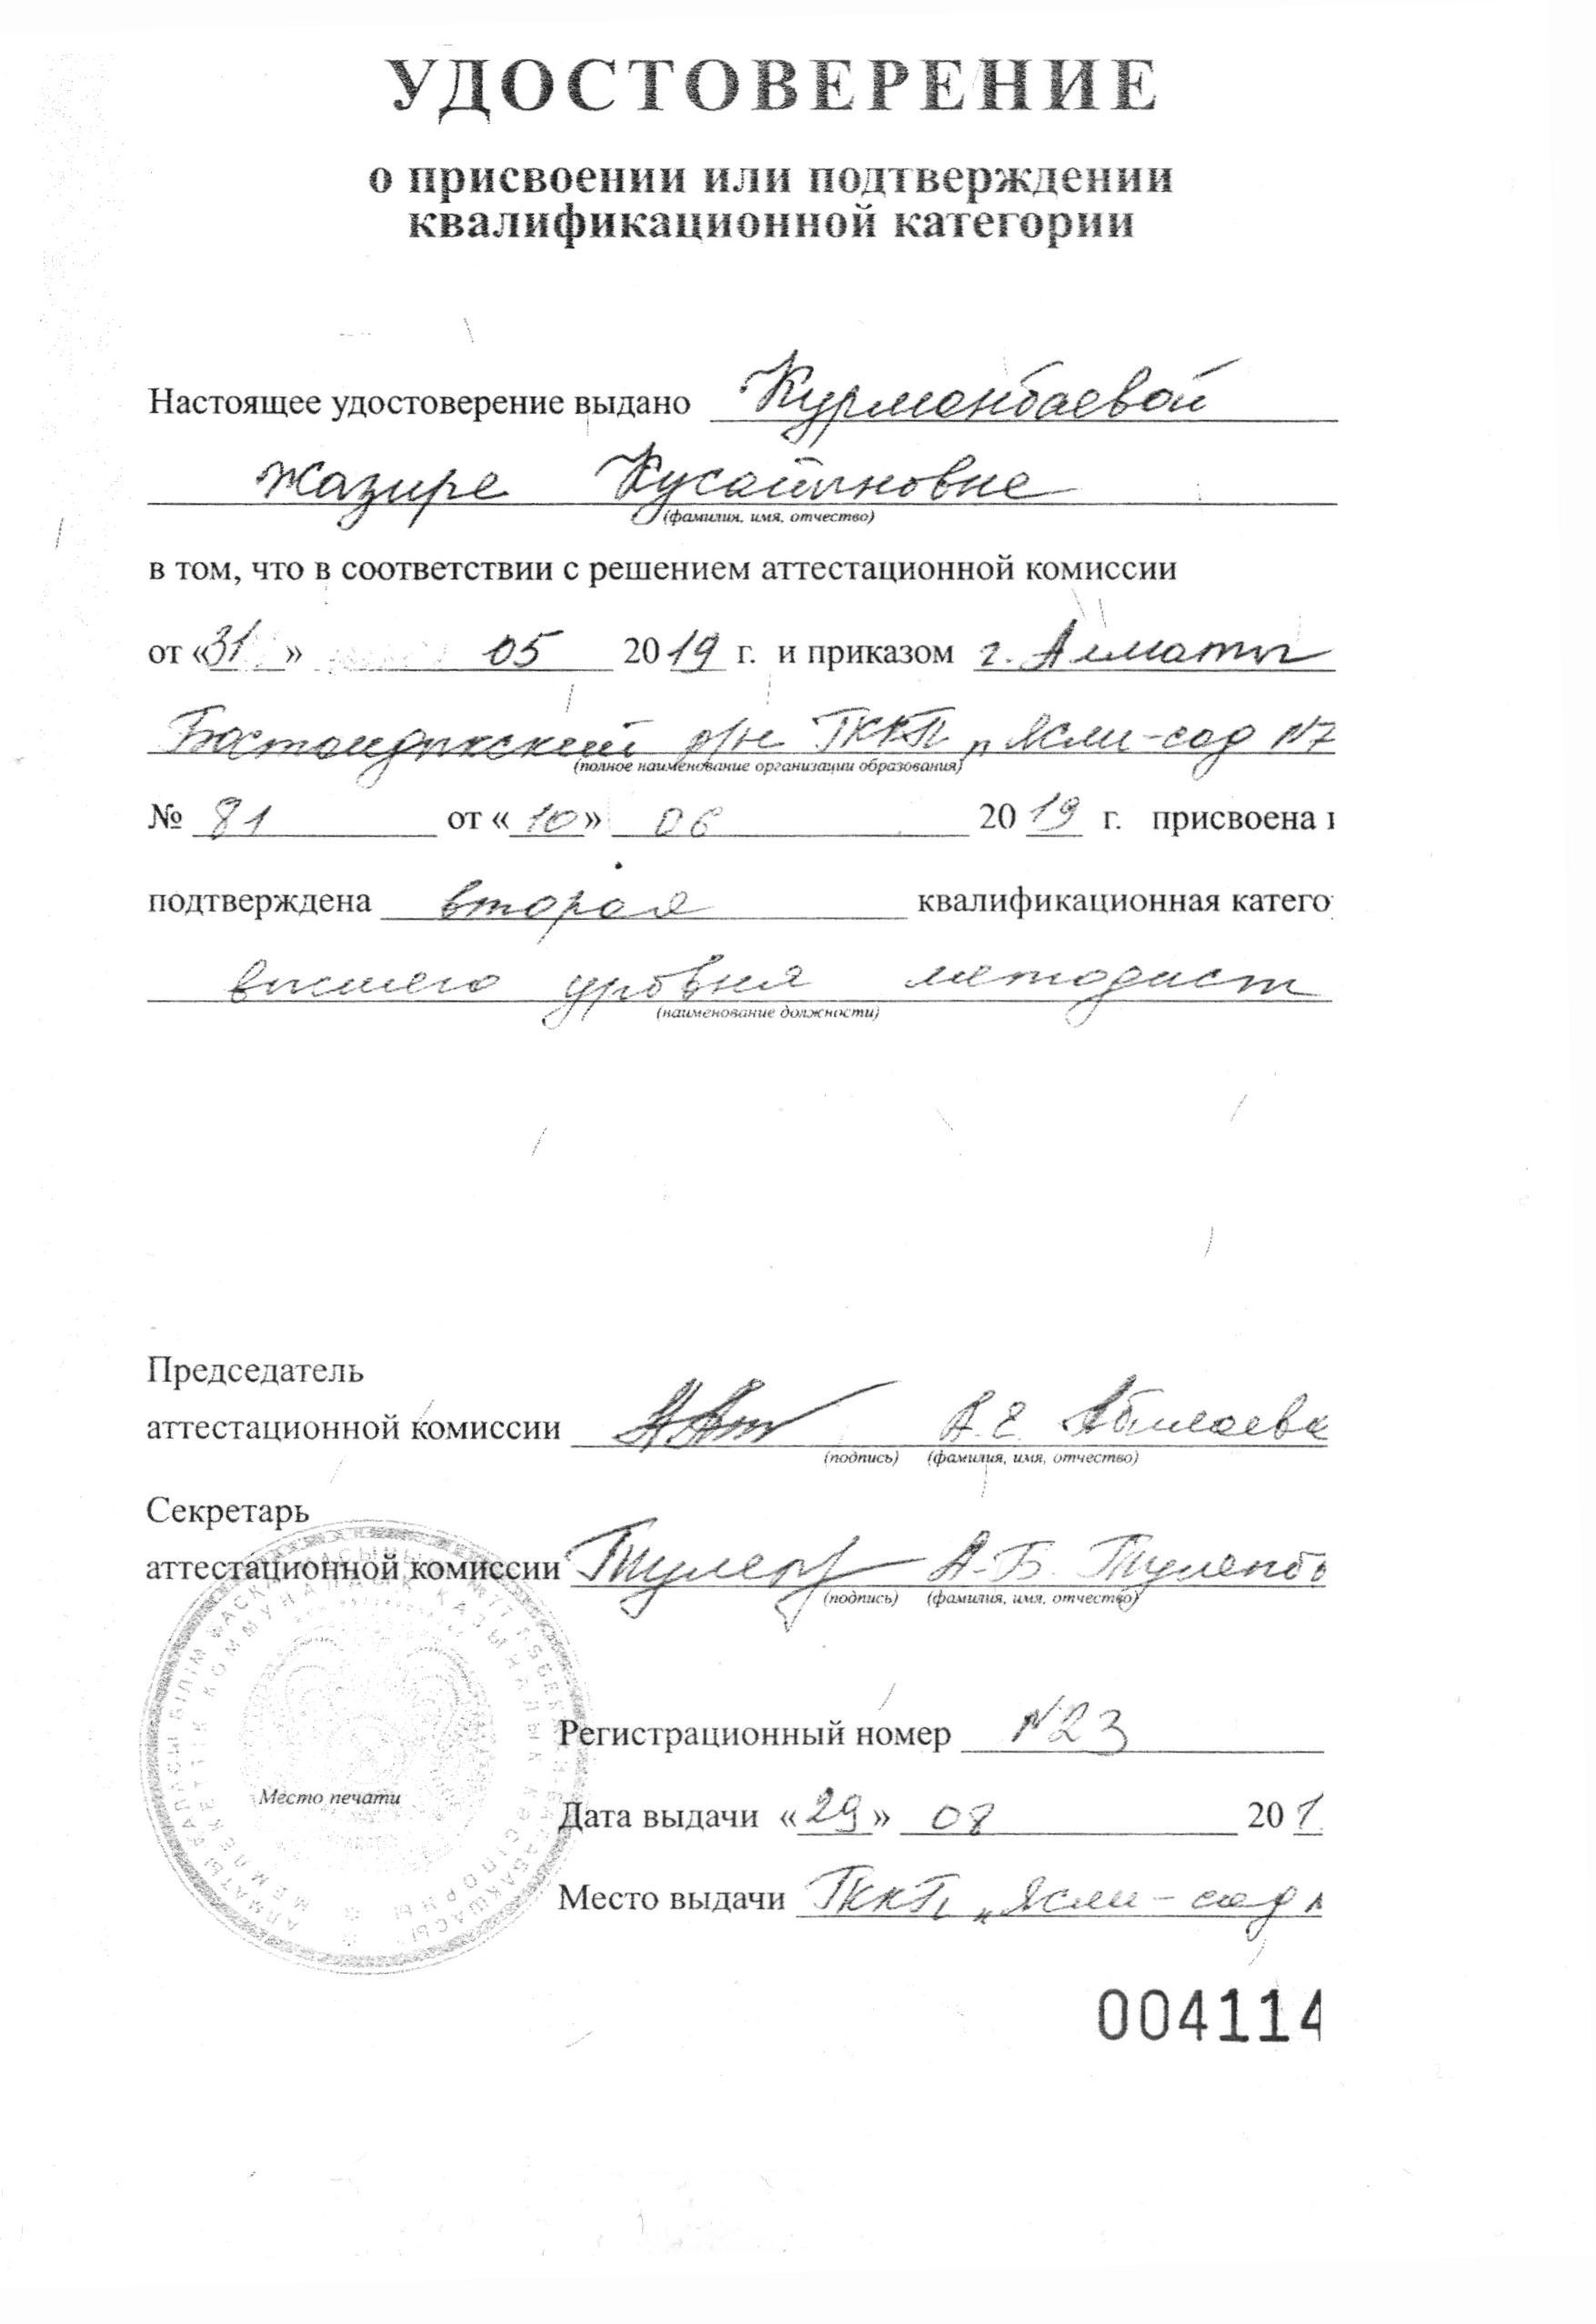 УДОСТОВЕРЕНИЕ
о присвоении или подтверждении
квалификационной категории
Настоящее удостоверение выдано Курманбаевой
Жазире Кусайыновне
(фамилия, имя, отчество)
в том, что в соответствии с решением аттестационной комиссии
от «31» 05 2019 г. и приказом г. Алматы
Бостандыкский р/н ГККП „Ясли-сад №7
(полное наименование организации образования)
№ 81 от «10» 06 2019 г. присвоена
подтверждена вторая квалификационная катего
высшего уровня методист
(наименование должности)
Председатель
аттестационной комиссии А.Е. Абилаева
(подпись) (фамилия, имя, отчество)
Секретарь
аттестационной комиссии А.Б. Тулепбе
(подпись) (фамилия, имя, отчество)
Регистрационный номер №23
Место печати
Дата выдачи «29» 08 201
Место выдачи ГККП „Ясли-сад
004114